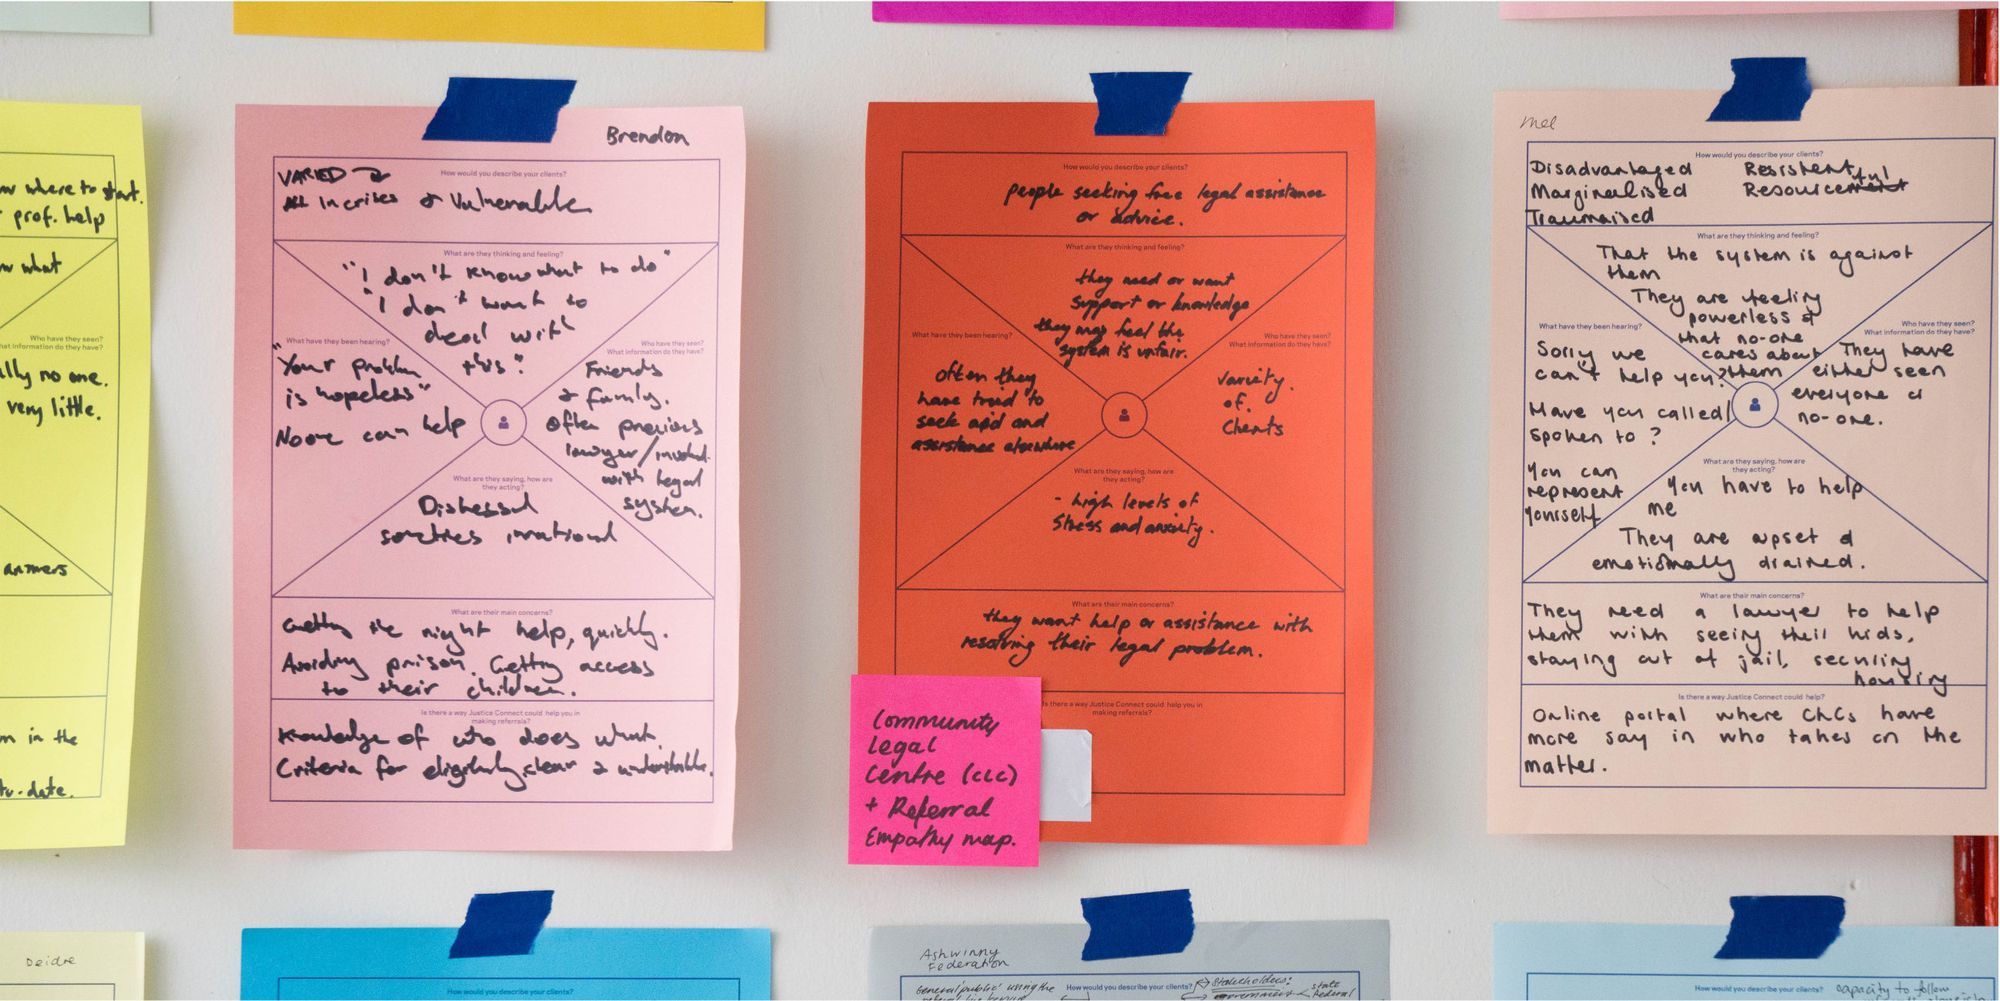 where to start.
prof. help
what
Who have they seen?
What information do they have?
no one.
very little.
answers
in the
Brendon
How would you describe your clients?
VARIED
In crises & Vulnerable
What are they thinking and feeling?
"I don't know what to do"
"I don't want to
deal with
this."
What have they been hearing?
"Your problem
is hopeless"
Noone can help
Who have they seen?
What information do they have?
Friends
& family.
Often previous
lawyer/
with legal
system.
What are they saying, how are
they acting?
Distressed
sometimes irrational
What are their main concerns?
Getting the right help, quickly.
Avoiding prison. Getting access
to their children.
Is there a way Justice Connect could help you in
making referrals?
Knowledge of who does what.
Criteria for eligibility clear & understandable.
How would you describe your clients?
people seeking free legal assistance
or advice.
What are they thinking and feeling?
they need or want
support or knowledge
they may feel the
system is unfair.
What have they been hearing?
often they
have tried to
seek aid and
assistance elsewhere
Who have they seen?
What information do they have?
variety
of
clients
What are they saying, how are
they acting?
- high levels of
stress and anxiety.
What are their main concerns?
they want help or assistance with
resolving their legal problem.
Is there a way Justice Connect could help you in
making referrals?
Community
Legal
Centre (CLC)
+ Referral
Empathy map.
Mel
How would you describe your clients?
Disadvantaged Resistent
Marginalised Resourceful
Traumaised
What are they thinking and feeling?
That the system is against
them
They are feeling
powerless &
that no-one
cares about
them
What have they been hearing?
Sorry we
can't help you?
Have you called/
spoken to?
You can
represent
yourself
Who have they seen?
What information do they have?
They have
either seen
everyone or
no-one.
What are they saying, how are
they acting?
You have to help
me
They are upset &
emotionally drained.
What are their main concerns?
They need a lawyer to help
them with seeing their kids,
staying out of jail, securing
housing
Is there a way Justice Connect could help?
Online portal where CLCs have
more say in who takes on the
matter.
Deidre
How would you describe your clients?
Ashwinny
Federation
How would you describe your clients?
General public using the
Stakeholders:
government
state
Federal
How would you describe your clients?
capacity to follow